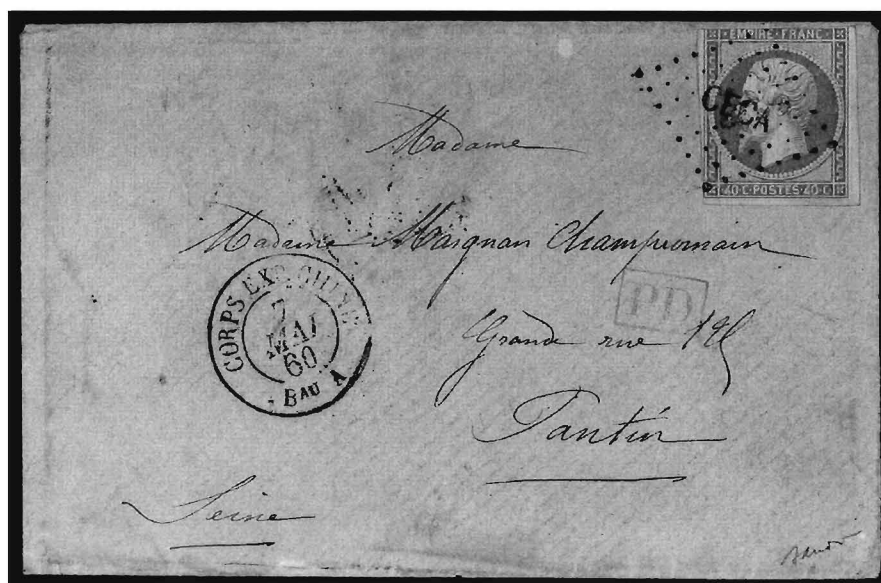 EMPIRE·FRANC
CECA
40·C·POSTES·40·C
Madame
Madame Maignan Champromain
CORPS EXP. CHINE
7
MAI
60
Bau A
PD
Grande rue 125
Pantin
Seine